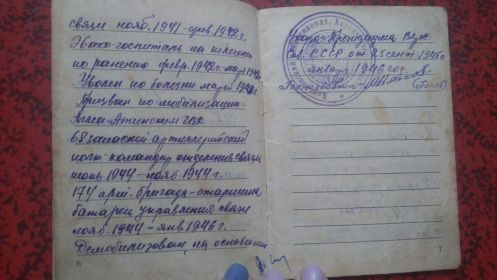 связи нояб. 1941-февр. 1942г.
Эвакогоспиталь на излечении
по ранению февр. 1942г.
Уволен по болезни
Призван по мобилизации
Алма-Атинским ГВК
68 запасной артиллерийский
полк-командир отделения связи
июнь 1944-нояб 1944г.
174 арт. бригада-старшина
батареи управления связи
нояб. 1944-янв 1946г.
Демобилизован, на основании
6
Указа Президиума Верх.
Сов. СССР от 25 сент. 1945г.
января 1946 года
Подполковник
(Попов)
7